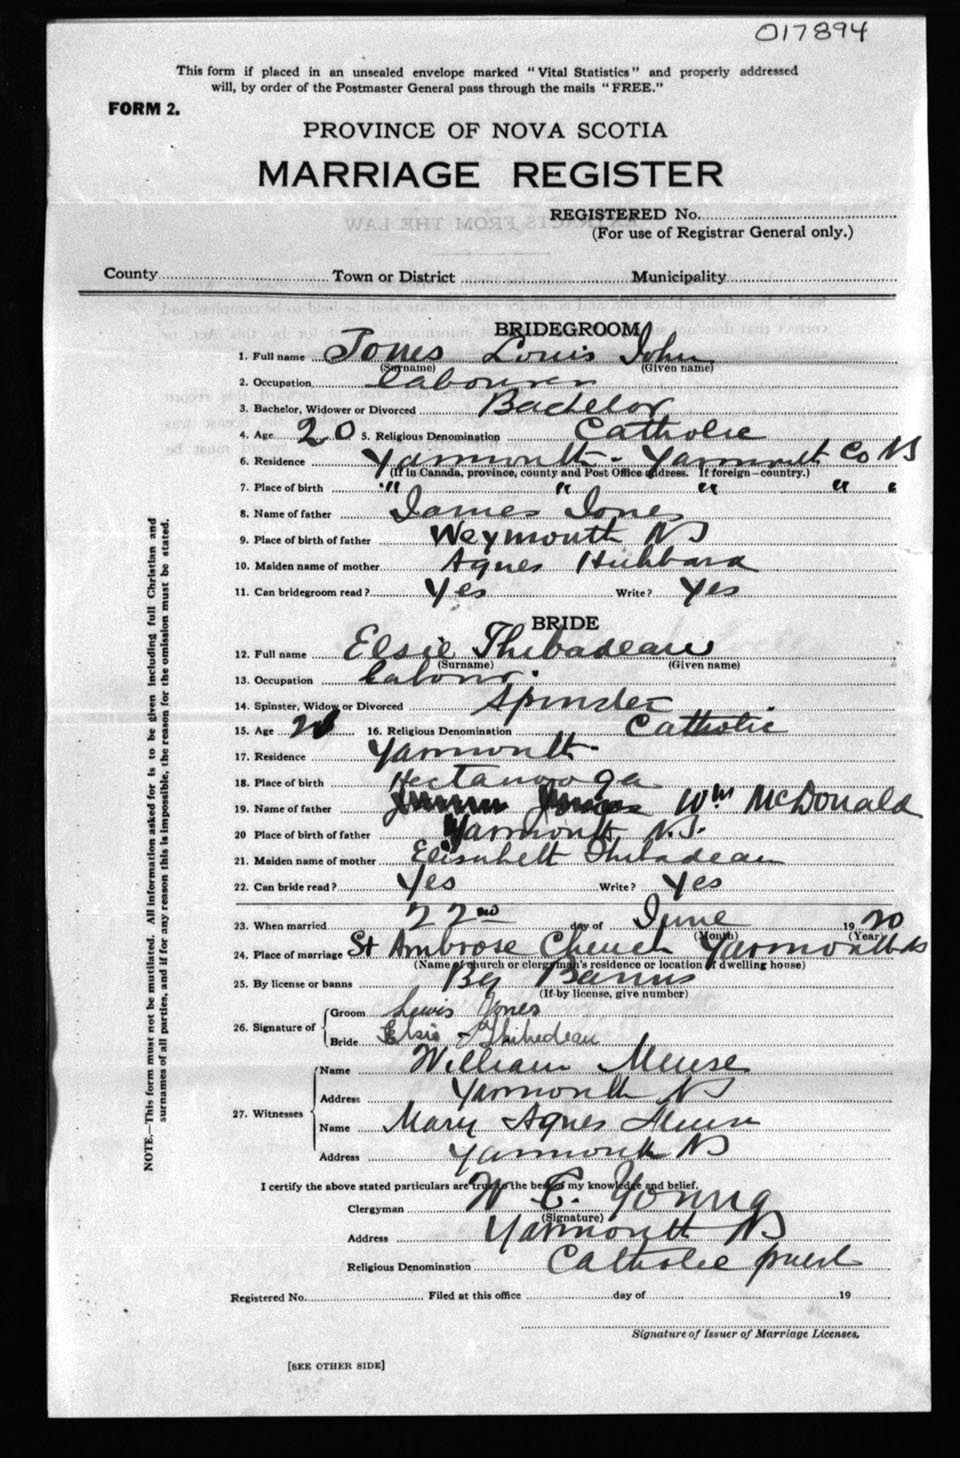 017894
This form if placed in an unsealed envelope marked "Vital Statistics" and properly addressed
will, by order of the Postmaster General pass through the mails "FREE."
FORM 2.
PROVINCE OF NOVA SCOTIA
MARRIAGE REGISTER
REGISTERED No.
(For use of Registrar General only.)
County Town or District Municipality
BRIDEGROOM
1. Full name Jones Louis John
(Surname) (Given name)
2. Occupation Labourer
3. Bachelor, Widower or Divorced Bachelor
4. Age 20 5. Religious Denomination Catholic
6. Residence Yarmouth - Yarmouth Co NS
(If in Canada, province, county and Post Office address. If foreign—country.)
7. Place of birth " " " " "
8. Name of father James Jones
9. Place of birth of father Weymouth NS
10. Maiden name of mother Agnes Hubbard
11. Can bridegroom read? Yes Write? Yes
BRIDE
12. Full name Elsie Thibadeau
(Surname) (Given name)
13. Occupation
14. Spinster, Widow or Divorced Spinster
15. Age 16. Religious Denomination Catholic
17. Residence Yarmouth
18. Place of birth Hectanooga
19. Name of father Wm McDonald
20 Place of birth of father Yarmouth N.S.
21. Maiden name of mother Elisabeth Thibadeau
22. Can bride read? Yes Write? Yes
23. When married 22nd day of June 1920
(Month) (Year)
24. Place of marriage St Ambrose Church Yarmouth NS
(Name of church or clergyman's residence or location of dwelling house)
25. By license or banns By Banns
(If by license, give number)
26. Signature of
Groom Lewis Jones
Bride Elsie Thibedeau
27. Witnesses
Name William Meuse
Address Yarmouth NS
Name Mary Agnes Meuse
Address Yarmouth NS
I certify the above stated particulars are true to the best of my knowledge and belief.
Clergyman W E. Young
(Signature)
Address Yarmouth NS
Religious Denomination Catholic priest
Registered No. Filed at this office day of 19
Signature of Issuer of Marriage Licenses.
[SEE OTHER SIDE]
NOTE.—This form must not be mutilated. All information asked for is to be given including full Christian and
surnames of all parties, and if for any reason this is impossible, the reason for the omission must be stated.